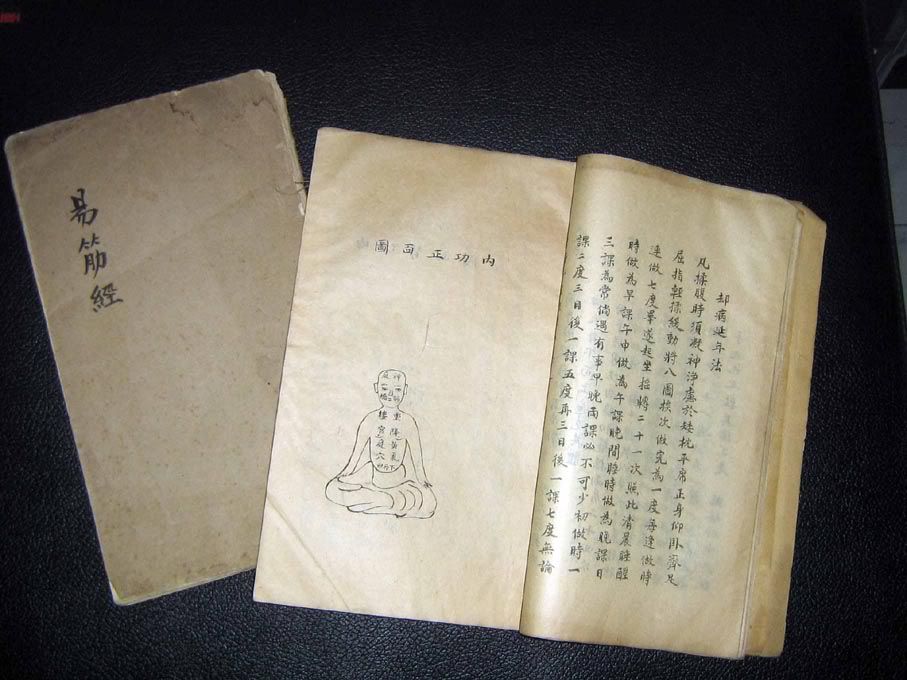 易筋經
内功正面圖
重樓
却病延年法
凡揉腹時須凝神淨慮於矮枕平席正身仰卧齊足
屈指輕揉緩動將八圖挨次做完為一度每逢做時
連做七度畢遂起坐搖轉二十一次照此清晨睡醒
時做為早課午中做為午課晚間睡時做為晚課日
三課為常倘遇有事早晚兩課必不可少初做時一
課二度三日後一課五度再三日後一課七度無論